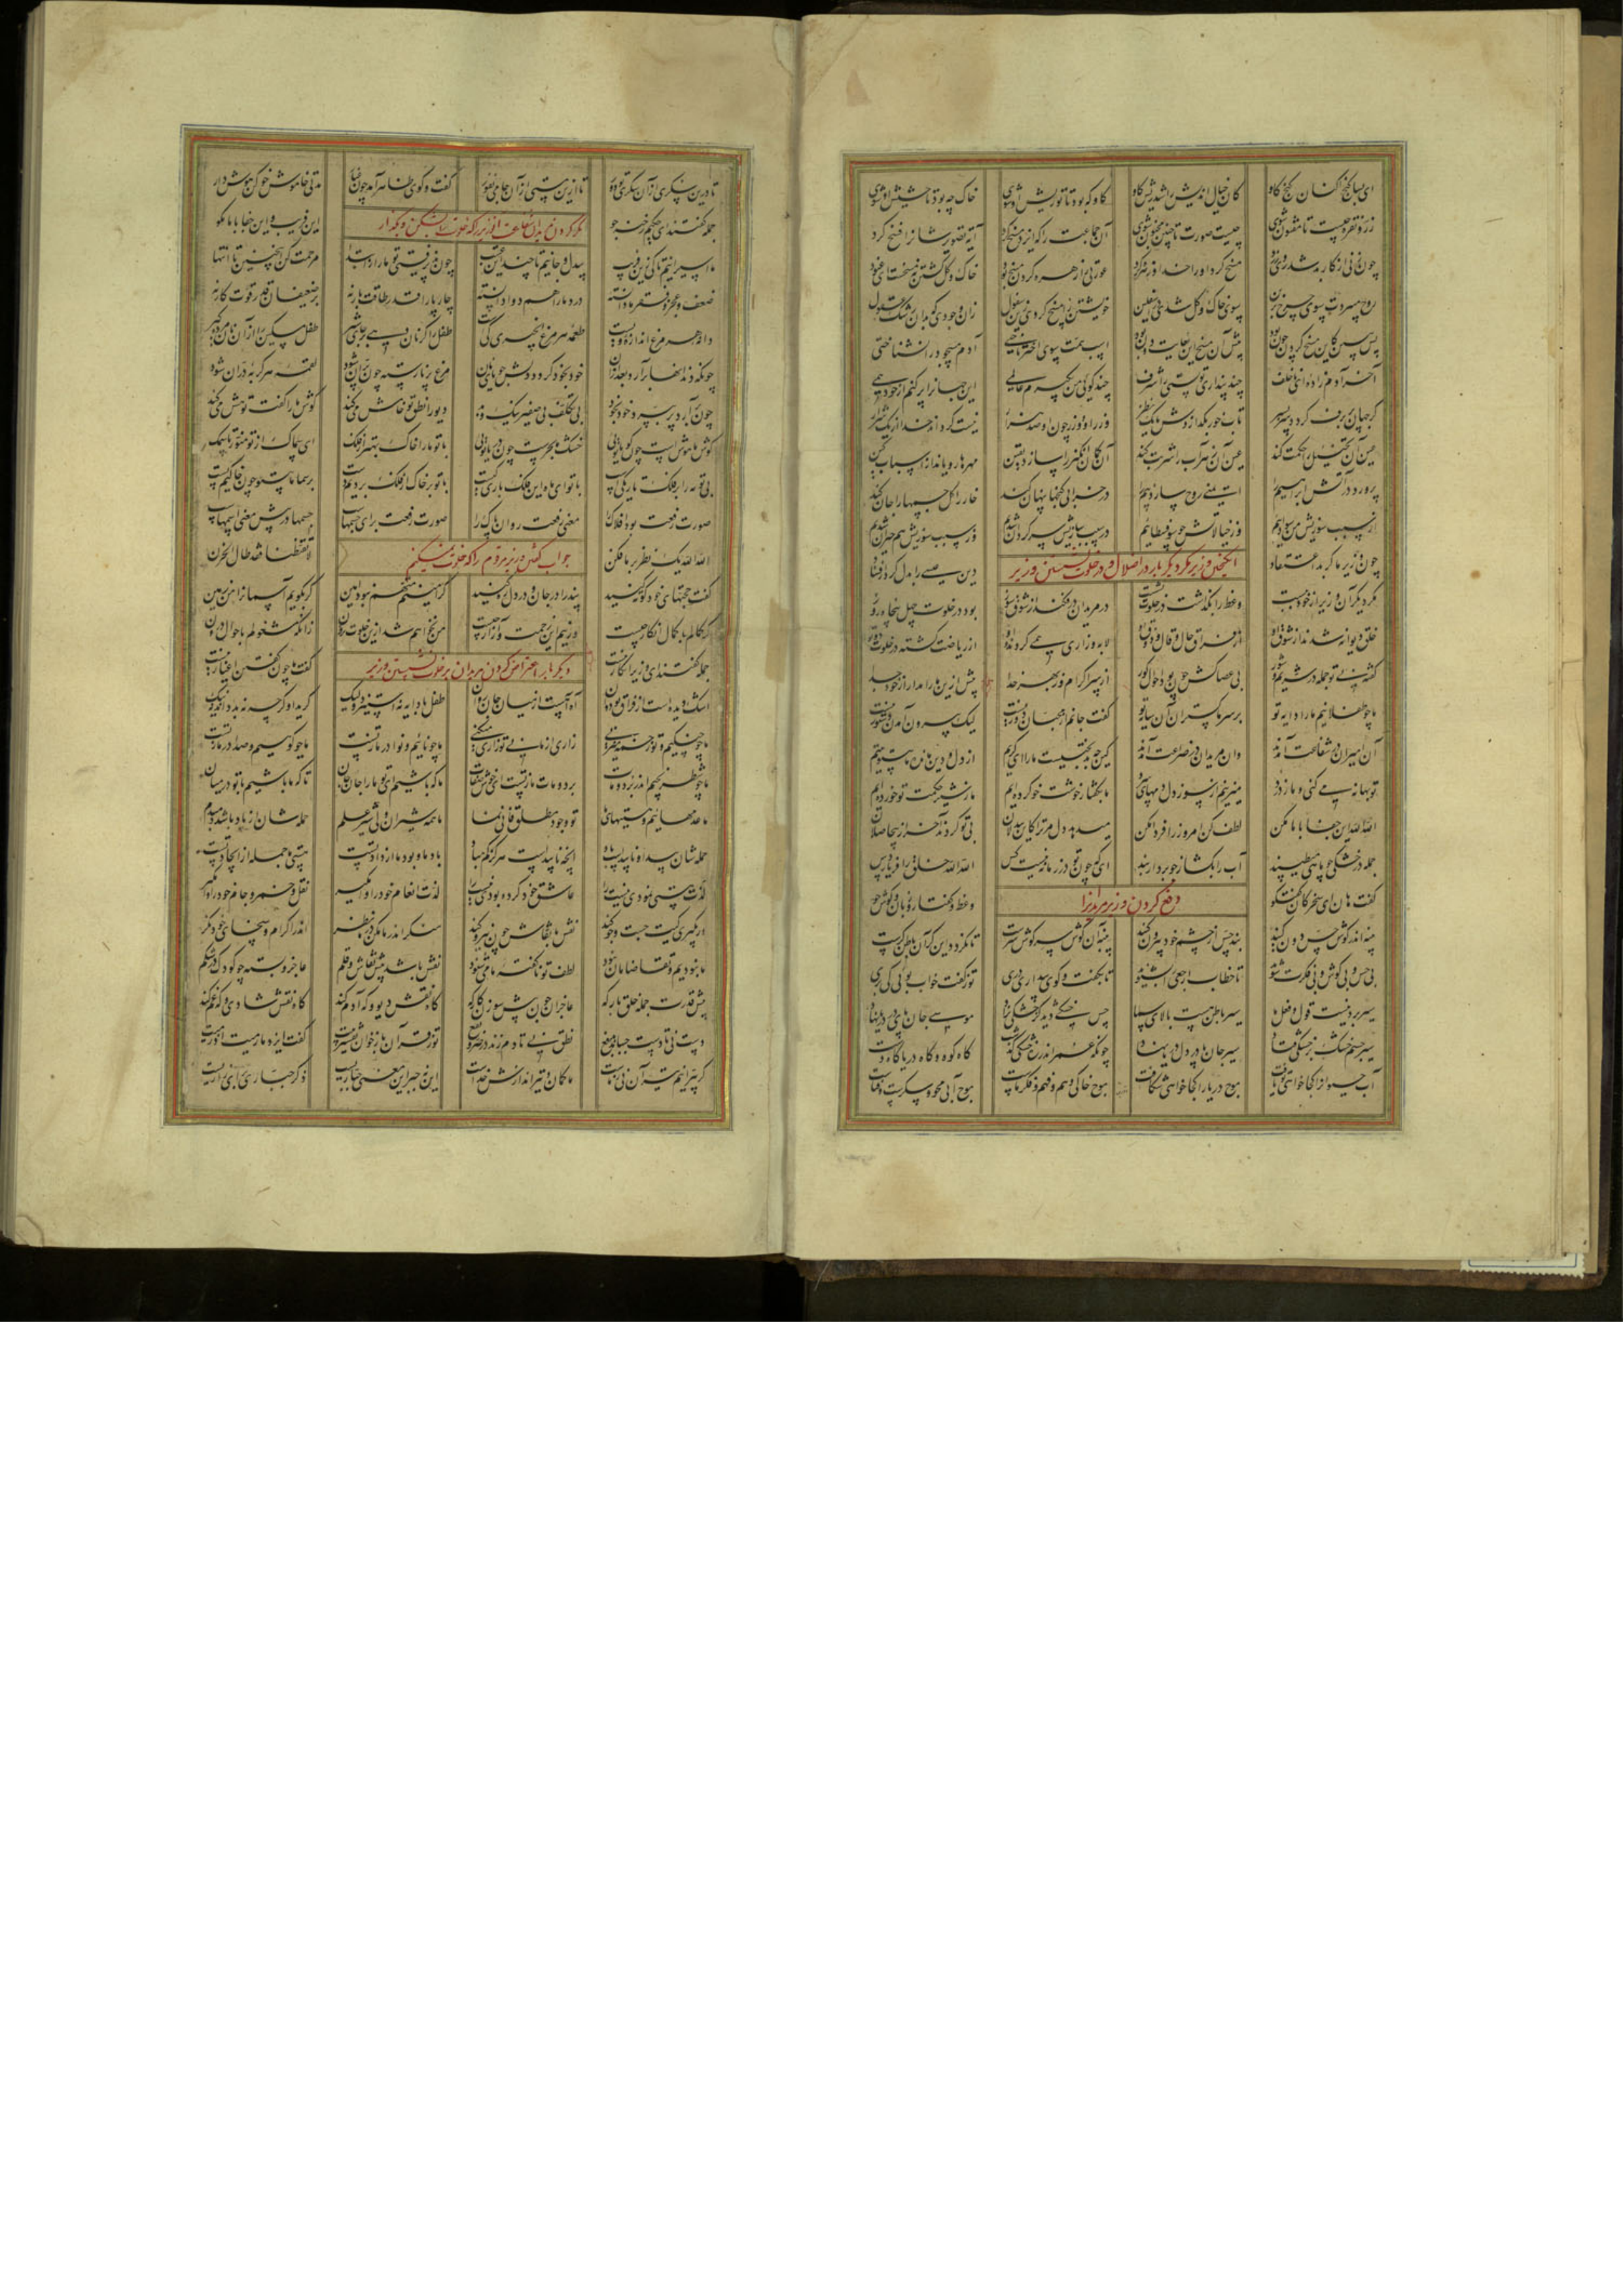 ای بسا گنج آکنان کنج کاو کان خیال اندیش را شد ریش گاو گاو که بود تا تو ریش او شوی خاک چه بود تا حشیش او شوی
زر و نقره چیست تا مفتون شوی چیست صورت تا چنین مجنون شوی آن جماعت را که ایزد مسخ کرد آیه تصویر شانرا فسخ کرد
چون زنی از کار بد شد روی زرد مسخ کرد او را خدا و زهره کرد عورتی را زهره کردن مسخ بود خاک و گل گشتن نه مسخست ای عنود
روح میبردت سوی چرخ برین سوی خاک و گل شدی خویشتن را مسخ کردی زین سفول زان وجودی که بدان رشک عقول
پس ببین کاین مسخ کردن چون بود پیش آن مسخ این بغایت دون بود اسب همت سوی اختر تاختی آدم مسجود را نشناختی
آخر آدم زاده ای ناخلف چند پنداری تو پستی را شرف چند گویی من بگیرم عالمی این جهانرا پر کنم از خود همی
گر جهان پر برف گردد سربسر تاب خور بگدازدش یک نظر وزر او و وزر چون او صد هزار نیست گرداند خدا از یک شرار
عین آن تخییل را حکمت کند عین آن زهراب را شربت کند آن گمان انگیز را سازد یقین مهرها رویاند از اسباب کین
پرورد در آتش ابراهیم را ایمنی روح سازد بیم را در خرابی گنجها پنهان کند خار را گل جسمها را جان کند
از سبب سوزیش من سوداییم وز خیالاتش چو سوفسطاییم در سبب سازیش سرگردان شدم وز سبب سوزیش هم حیران شدم
چون وزیر ماکر بد اعتقاد دین عیسی را بدل کرد از فساد
انگیختن وزیر مکر دیگر بار در اضلال و در خلوت نشستن وزیر
مکر دیگر آن وزیر از خود ببست وعظ را بگذاشت در خلوت نشست در مریدان در فکند از شوق سوز بود در خلوت چهل پنجاه روز
خلق دیوانه شدند از شوق او از فراق حال و قال و ذوق او لابه و زاری همی کردند و او از ریاضت گشته در خلوت دوتو
گفته بی تو جمله در بی عصاکش چون بود احوال کور از سر اکرام و از بهر خدا بیش ازین ما را مدار از خود جدا
ما چو طفلانیم ما را دایه تو بر سر ما گستران آن سایه تو گفت جانم از محبان دور نیست لیک بیرون آمدن دستور نیست
آن امیران در شفاعت آمدند وان مریدان در ضراعت آمدند کین چه بدبختیست ما را ای کریم از دل و دین مانده ما بی تو یتیم
تو بهانه می کنی و ما ز درد میزنیم از سوز دل دمهای سرد ما بگفتار خوشت خو کرده ایم ما ز شیر حکمت تو خورده ایم
الله الله این جفا با ما مکن لطف کن امروز را فردا مکن میدهد دل مر ترا کاین بیدلان بی تو گردند آخر از بیحاصلان
جمله در خشکی چو ماهی میطپند آب را بگشا ز جو بردار بند ای که چون تو در زمانه نیست کس الله الله خلق را فریاد رس
گفت هان ای سخرگان گفت و گو وعظ و گفتار زبان و گوش جو
دفع کردن وزیر مریدانرا
پنبه اندر گوش حس دون کنید بند حس از چشم خود بیرون کنید پنبه آن گوش سر گوش سرست تا نگردد این کر آن باطن کرست
بی حس و بی گوش و بی فکرت شوید تا خطاب ارجعی را بشنوید تا بگفت و گوی بیداری دری تو ز گفت خواب بویی کی بری
سیر بیرونیست قول و فعل ما سیر باطن هست بالای سما حس خشکی دید کز خشکی بزاد موسی جان پای در دریا نهاد
سیر جسم خشک بر خشکی فتاد سیر جان پا در دل دریا نهاد چونکه عمر اندر ره خشکی گذشت گاه کوه و گاه دریا گاه دشت
آب حیوان از کجا خواهی تو یافت موج دریا را کجا خواهی شکافت موج خاکی وهم و فهم و فکر ماست موج آبی محو و سکرست و فناست
تا درین سکری از آن سکری تو دور تا ازین مستی از آن جامی نفور گفت و گوی ظاهر آمد چون غبار مدتی خاموش خو کن هوش دار
جمله گفتند ای حکیم رخنه جو این فریب و این جفا با ما مگو
مکر کردن مریدان که خلوت را بشکن و بگذار
ما اسیرانیم تا کی زین فریب بیدل و جانیم تا چند این عتیب چون پذیرفتی تو ما را ز ابتدا مرحمت کن همچنین تا انتها
ضعف و عجز و فقر ما دانسته درد ما را هم دوا دانسته چارپا را قدر طاقت بار نه بر ضعیفان قدر قوت کار نه
دانه هر مرغ اندازه ویست طعمه هر مرغ انجیری کیست طفل را گر نان دهی بر جای شیر طفل مسکین را از آن نان مرده گیر
چونکه دندانها برآرد بعد از آن خود بخود گردد دلش جویای نان مرغ پر نارسته چون پران شود لقمه هر گربه دران شود
چون برآرد پر بپرد او بخود بی تکلف بی صفیر نیک و بد دیو را نطق تو خامش می کند گوش ما را گفت تو هش می کند
گوش ما هوش است چون گویا تویی خشک ما بحرست چون دریا تویی با تو ما را خاک بهتر از فلک ای سماک از تو منور تا سمک
بی تو ما را بر فلک تاریکیست با تو ای ماه این فلک باری کیست با تو بر خاک از فلک بردیم دست بر سما ما بی تو چون خاکیم پست
صورت رفعت بود افلاک را معنی رفعت روان پاک را صورت رفعت برای جسمهاست جسمها در پیش معنی اسمهاست
الله الله یک نظر بر ما فکن لا تقنطنا فقد طال الحزن
جواب گفتن وزیر مردم را که خلوت نمیشکنم
گفت حجتهای خود کوته کنید پند را در جان و در دل ره کنید گر امینم متهم نبود امین گر بگویم آسمانرا من زمین
گر کمالم با کمال انکار چیست ور نیم این زحمت و آزار چیست من نخواهم شد ازین خلوت برون زانکه مشغولم باحوال درون
جمله گفتند ای وزیر انکار نیست گفت ما چون گفتن اغیار نیست
دیگر بار اعتراض کردن مریدان بر خلوت نشستن وزیر
اشک دیده است از فراق تو دوان آه آهست از میان جان روان طفل با دایه نه استیزد ولیک گرید او گرچه نه بد داند نه نیک
ما چو چنگیم و تو زخمه میزنی زاری از ما نی تو زاری میکنی ما چو ناییم و نوا در ما ز تست ما چو کوهیم و صدا در ما ز تست
ما چو شطرنجیم اندر برد و مات برد و مات ما ز تست ای خوش صفات ما که باشیم ای تو ما را جان جان تا که ما باشیم با تو در میان
ما عدمهاییم و هستیهای ما تو وجود مطلق فانی نما ما همه شیران ولی شیر علم حمله شان از باد باشد دم بدم
حمله شان پیدا و ناپیداست باد آنکه ناپیداست هرگز کم مباد باد ما و بود ما از داد تست هستی ما جمله از ایجاد تست
لذت هستی نمودی نیست را عاشق خود کرده بودی نیست را لذت انعام خود را وامگیر نقل و خمر و جام خود را وامگیر
ور بگیری کیت جست و جو کند نقش با نقاش چون نیرو کند منگر اندر ما مکن در ما نظر اندر اکرام و سخای خود نگر
ما نبودیم و تقاضامان نبود لطف تو ناگفته ما می شنود نقش باشد پیش نقاش و قلم عاجز و بسته چو کودک در شکم
پیش قدرت جمله خلق بارگه عاجزان چون پیش سوزن کارگه گاه نقش دیو و گه آدم کند گاه نقش شادی و گه غم کند
دست نی تا دست جنباند بدفع نطق نی تا دم زند از ضر و نفع تو ز قرآن بازخوان تفسیر بیت گفت ایزد ما رمیت اذ رمیت
گر بپرانیم تیر آن نی ز ماست ما کمان و تیراندازش خداست این نه جبر این معنی جباریست ذکر جباری برای زاریست